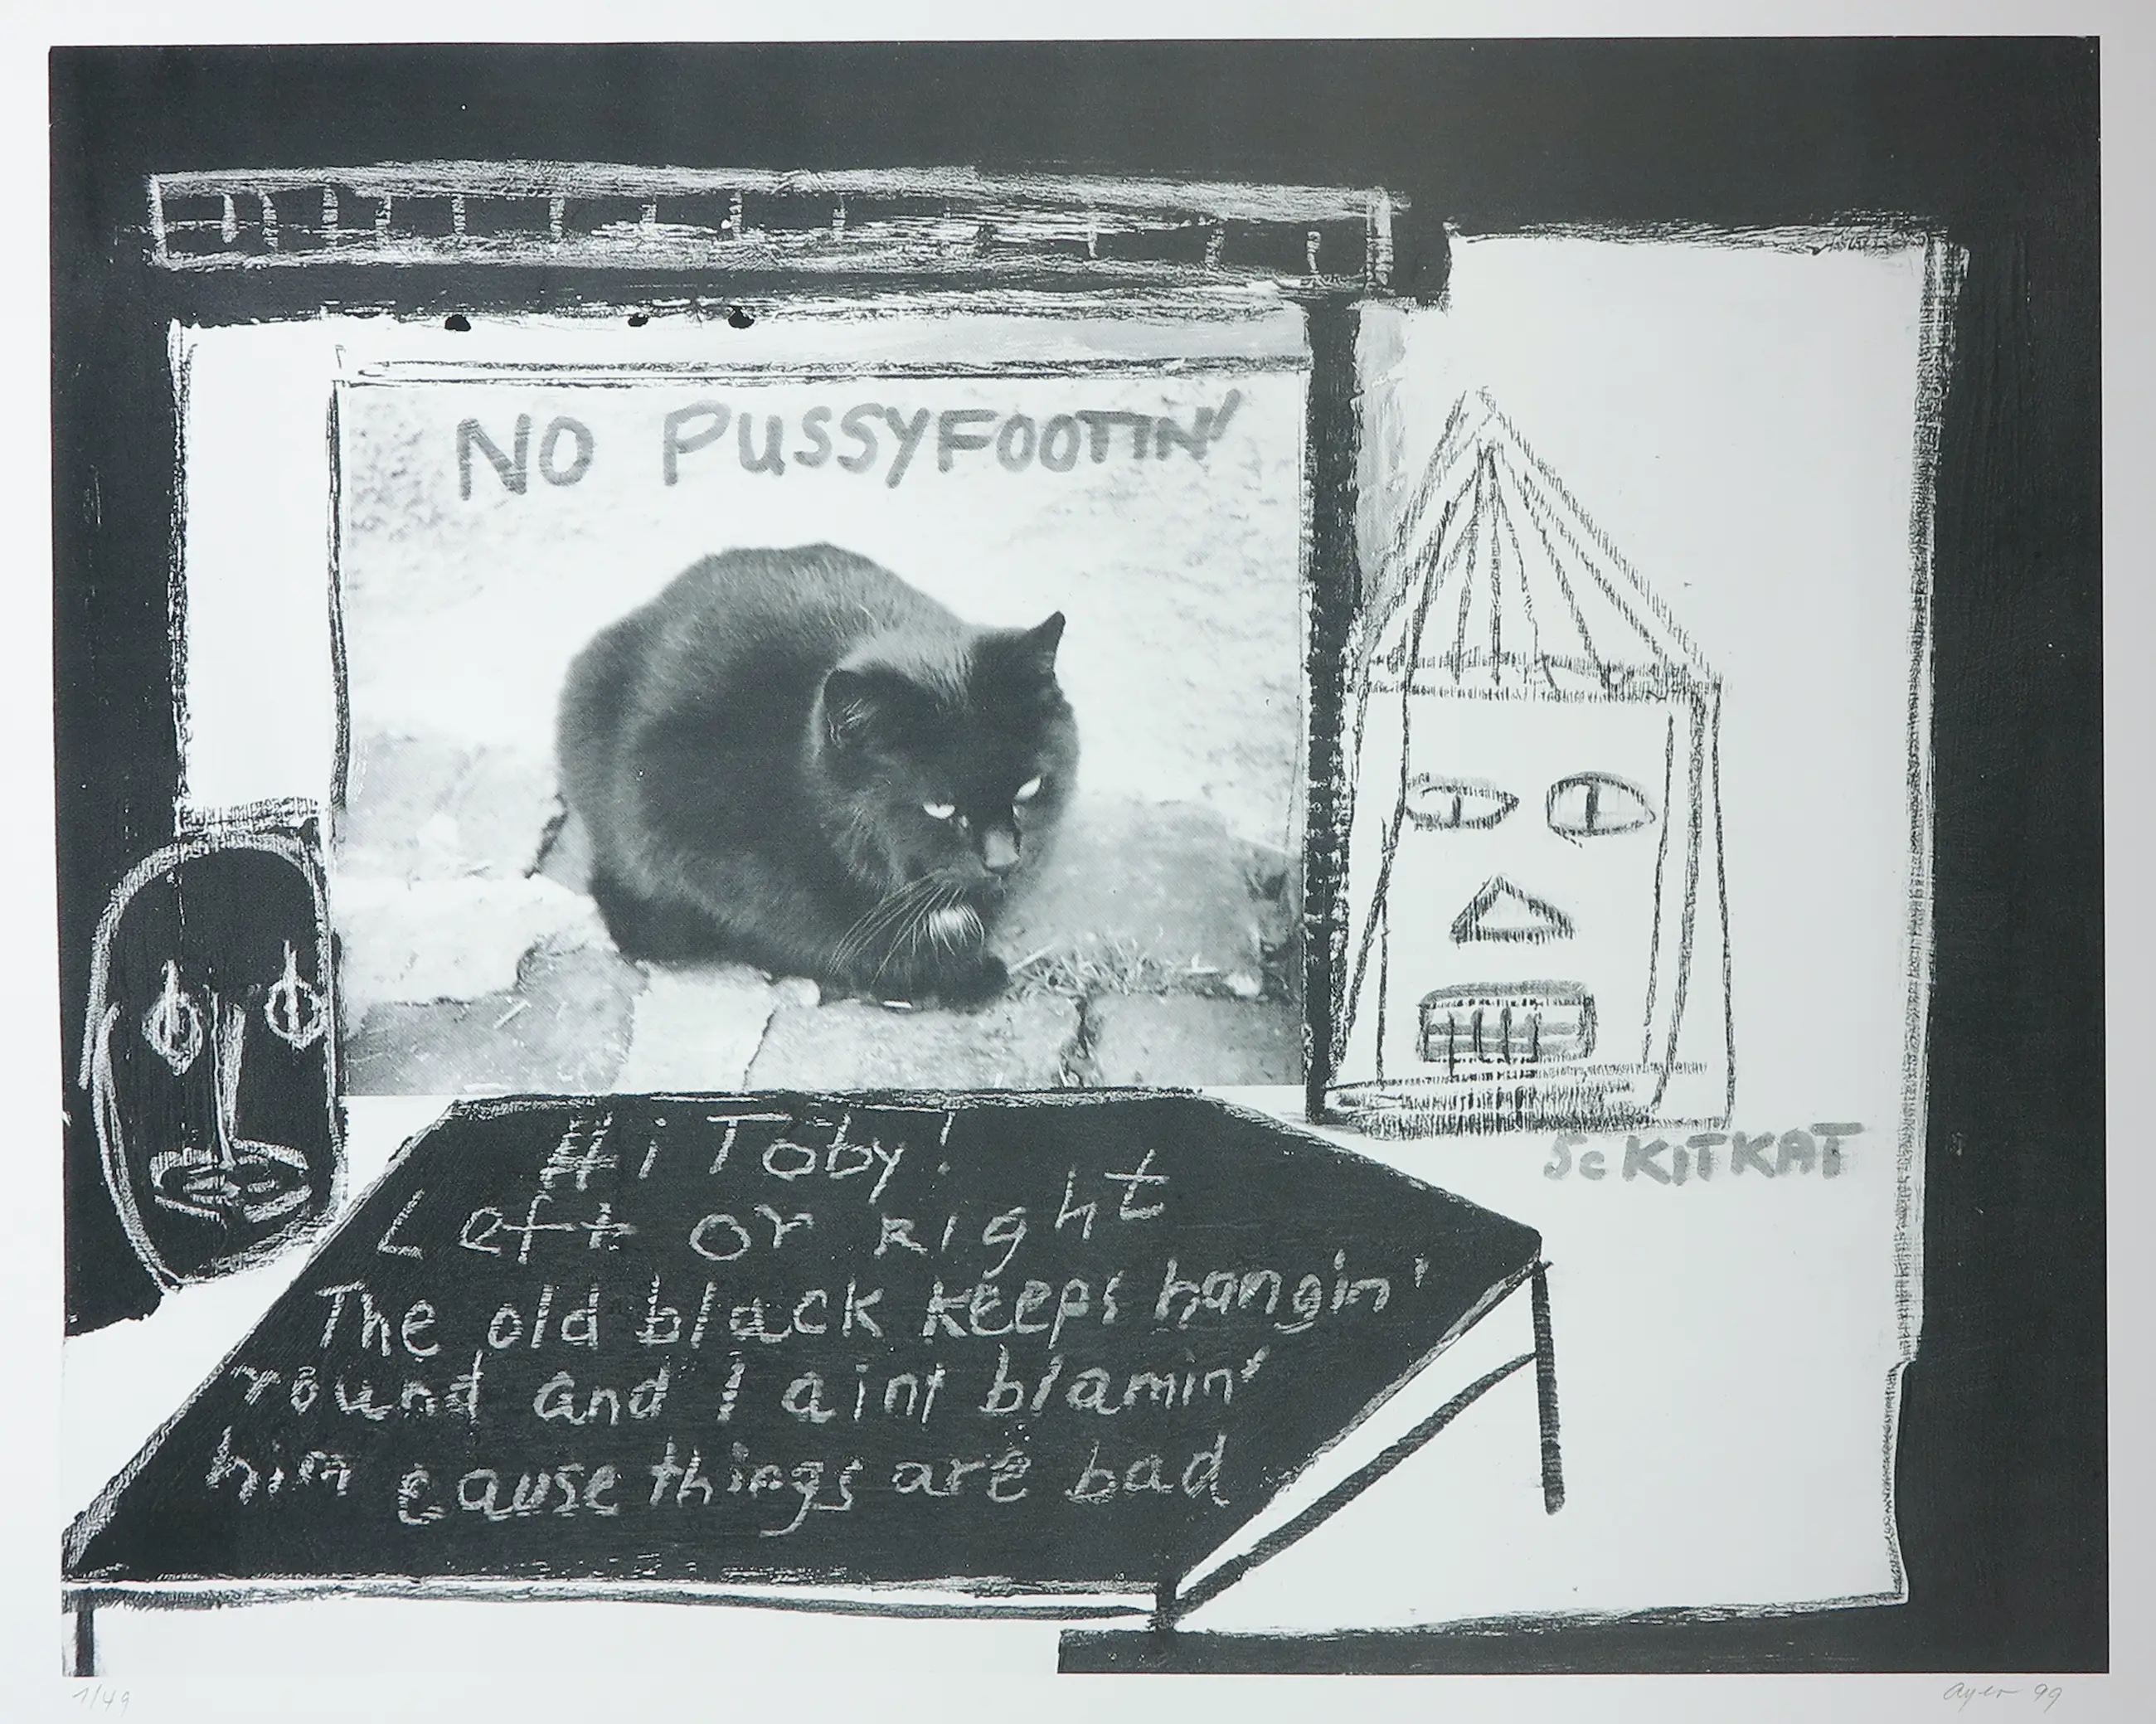 NO PUSSYFOOTIN'
Sc KITKAT
Hi Toby!
Left or Right
The old black keeps hangin'
round and I aint blamin'
him cause things are bad
1/49
99